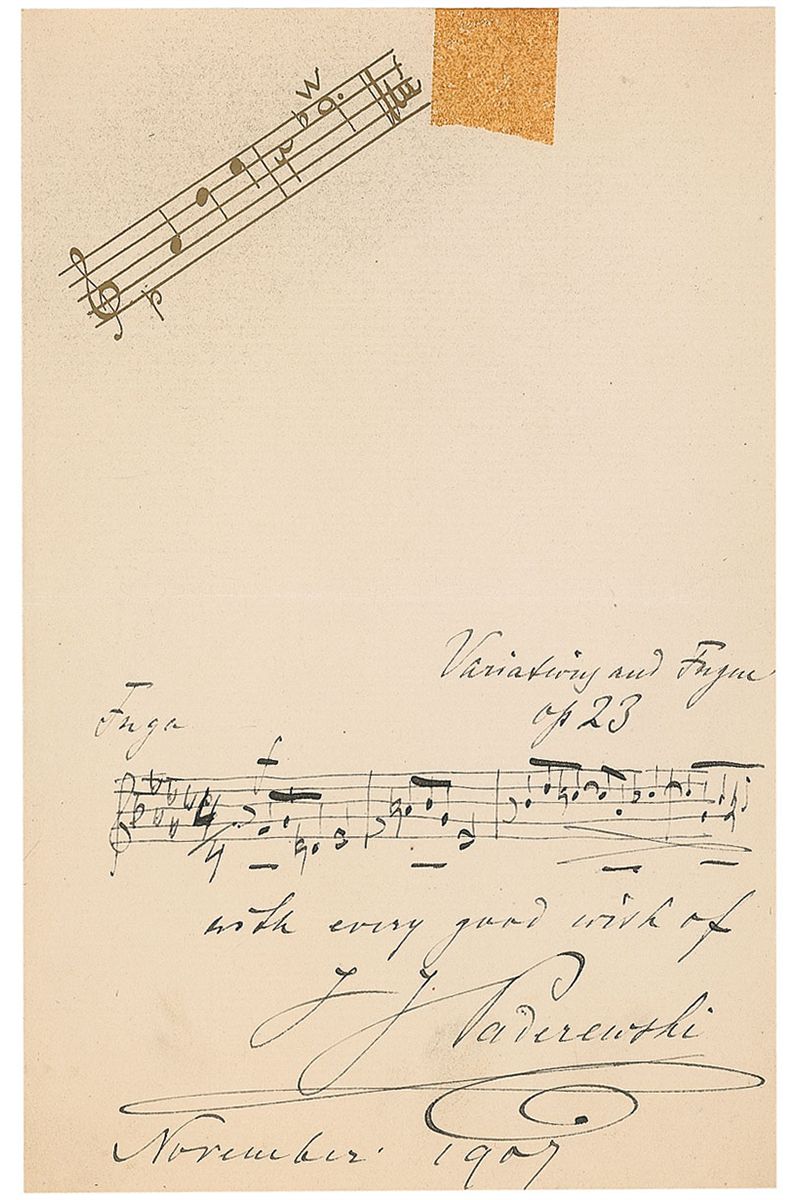 Variations and Fugue
op 23
Fuga
with every good wish of
I J Paderewski
November 1907